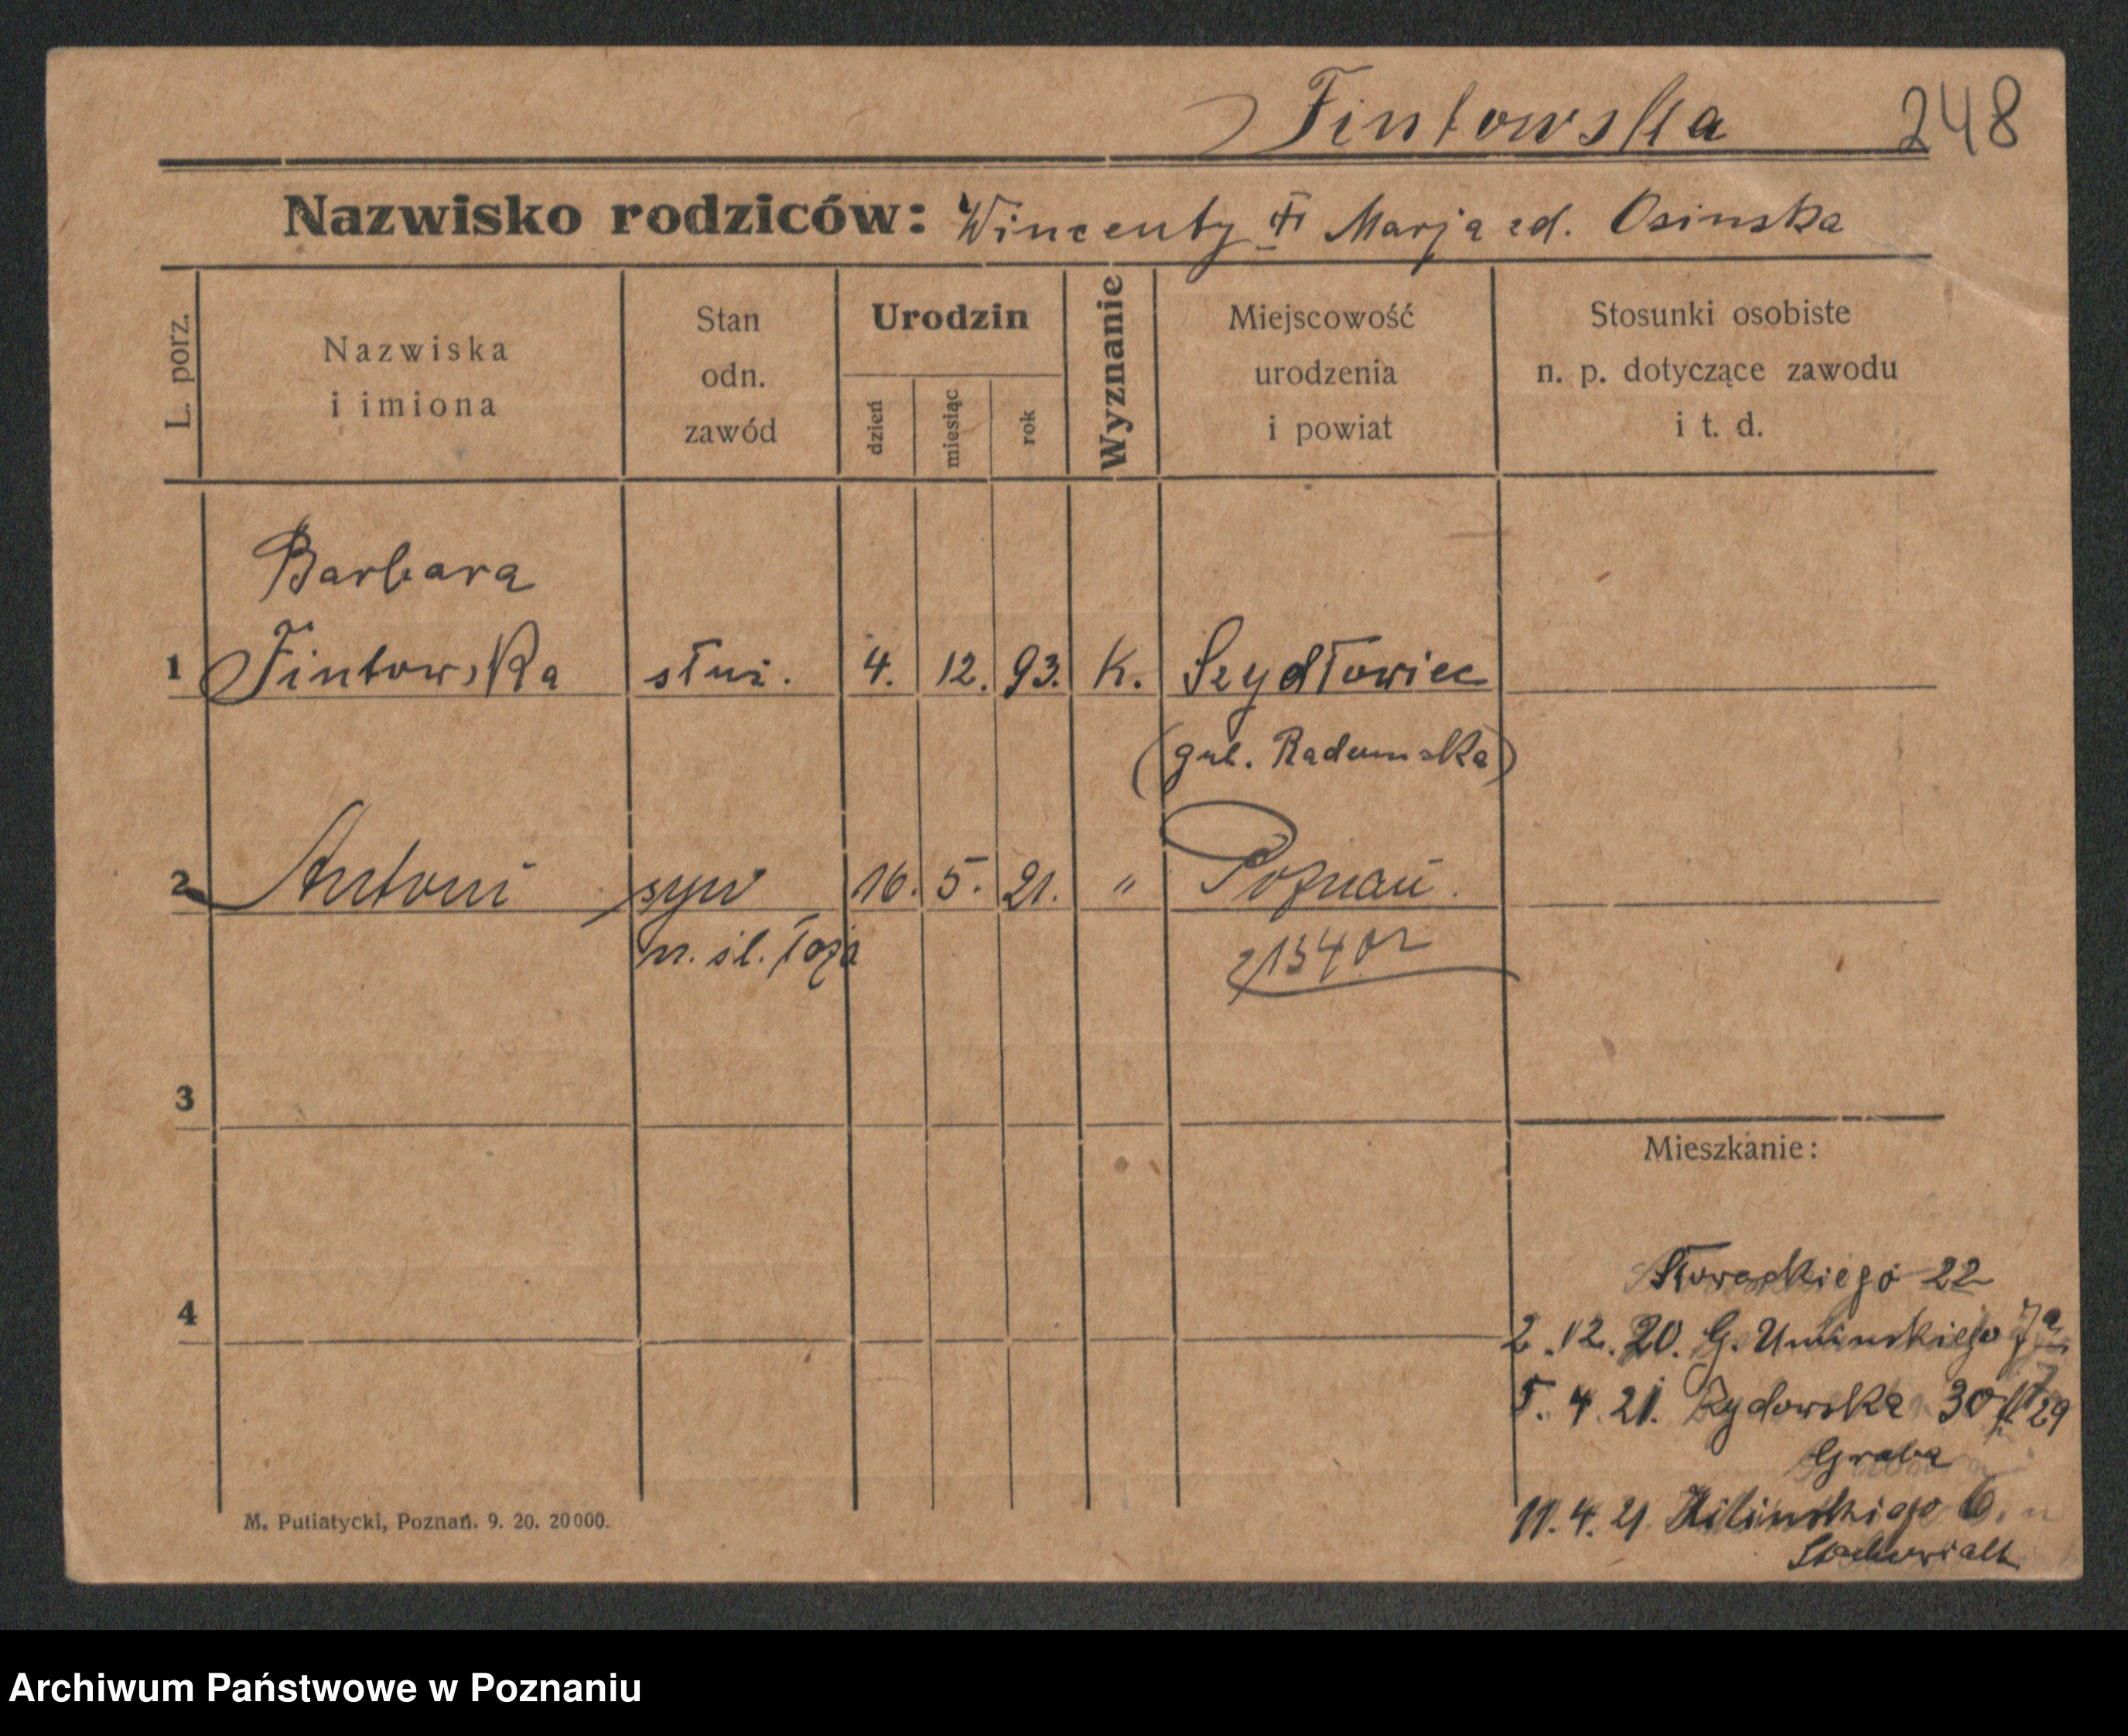 Fintowska 248
Nazwisko rodziców: Wincenty F. Marja zd. Osinska
L. porz.
Nazwiska
i imiona
Stan
odn.
zawód
Urodzin
dzień
miesiąc
rok
Wyznanie
Miejscowość
urodzenia
i powiat
Stosunki osobiste
n. p. dotyczące zawodu
i t. d.
Barbara
1 Fintowska służ. 4. 12. 93. K. Szydłowiec
(gub. Radomska)
2 Antoni syn 16. 5. 21. " Poznań.
n. śl. łoża
3
Mieszkanie:
4
Słowackiego 22
2.12.20. G. Umińskiego 7a
5. 4 21. Żydowska 30
Graba
11.4.21 Kilińskiego 6.
Stachowiak
M. Putiatycki, Poznań. 9. 20. 20000.
Archiwum Państwowe w Poznaniu